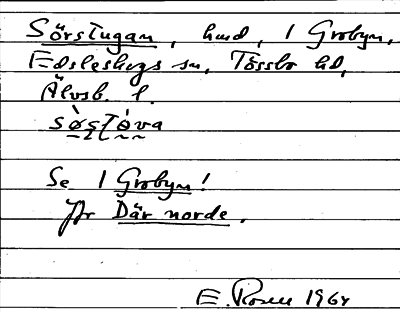 Sörstugan, hmd, 1 Grobyn,
Edsleskogs sn, Tössbo hd,
Älvsb. l.
sö̀sṭó̀va
Se 1 Grobyn!
Jfr Där norde.
E. Rosen 1964